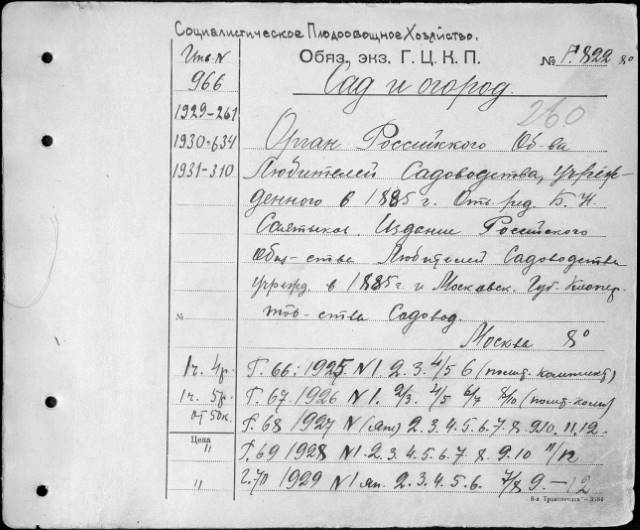 Социалистическое Плодоовощное Хозяйство.
Инв. N
966
1929-261
1930-634
1931-310
Обяз. экз. Г. Ц. К. П.
№ Г.822 8°
Сад и огород.
260
Орган Российского Об-ва
Любителей Садоводства, учреж-
денного в 1885 г. Отв. ред. Б. Н.
Салтыков. Издание Российского
Общ-ства Любителей Садоводства
учрежд. в 1885 г и Московск. Губ. Кооперт
тов-ства Садовод.
№
Москва 8°
1 г. 4 р. Г. 66: 1925 N 1. 2. 3. 4/5 6 (полн. комплект)
1 г. 5 р. Г. 67 1926 N 1. 2/3. 4/5 6/7 8/10 (полн. компл)
от 50к. Г. 68 1927 N (Ян) 2. 3. 4. 5. 6. 7. 8. 9.10. 11. 12.
Цена " Г. 69 1928 N 1. 2. 3. 4. 5. 6. 7. 8. 9. 10 11/12
" Г. 70 1929 N 1 ян. 2. 3. 4. 5. 6. 7/8 9 — 12